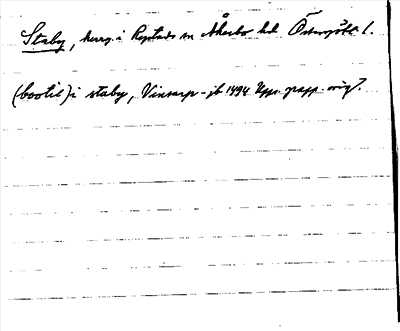 Staby, herrg. i Rystads sn Åkerbo hd Östergötl. l.
(bootil) i staby, Vinsarp-jb 1494 Upps. papp. orig.